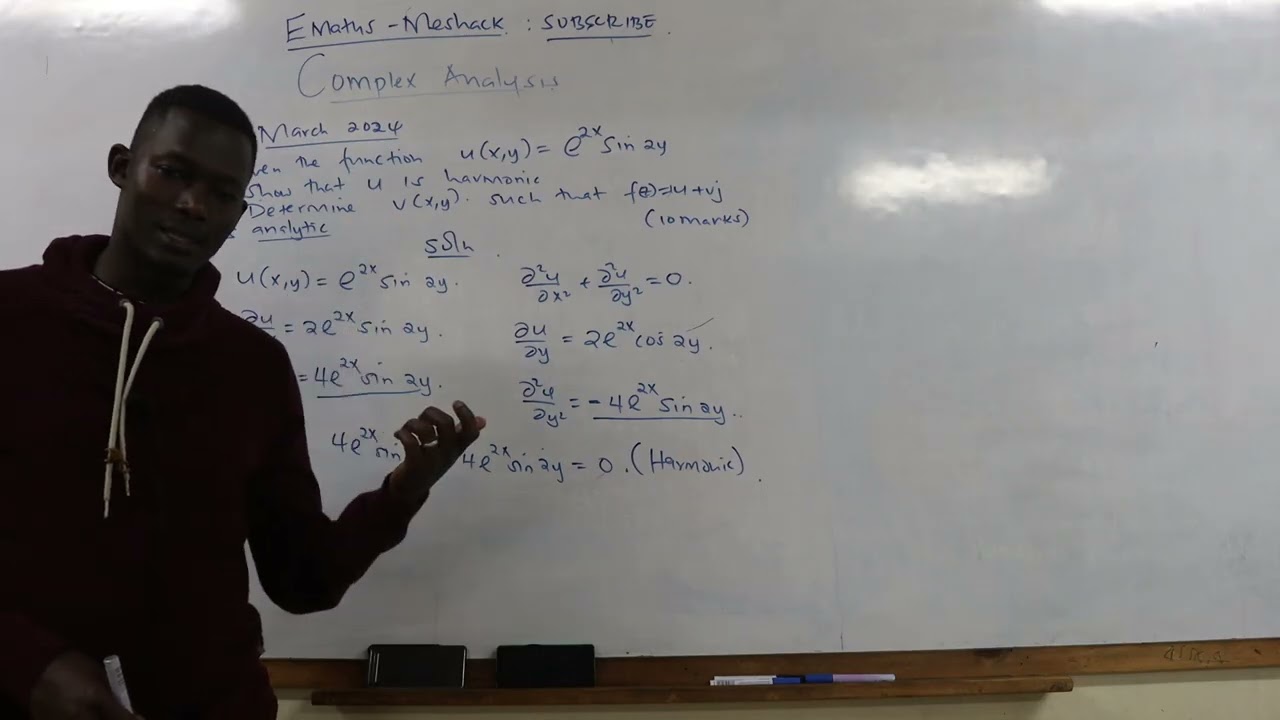 EMaths - Meshack : SUBSCRIBE
Complex Analysis
March 2024
ven the function u(x,y) = e^{2x} sin 2y
show that u is harmonic
Determine v(x,y). such that f(z)=u+vj
analytic (10 marks)
soln
u(x,y) = e^{2x} sin 2y. ∂²u/∂x² + ∂²u/∂y² = 0.
∂u = 2e^{2x} sin 2y. ∂u/∂y = 2e^{2x} cos 2y.
= 4e^{2x} sin 2y. ∂²u/∂y² = -4e^{2x} sin 2y.
4e^{2x} sin 4e^{2x} sin 2y = 0. (Harmonic)